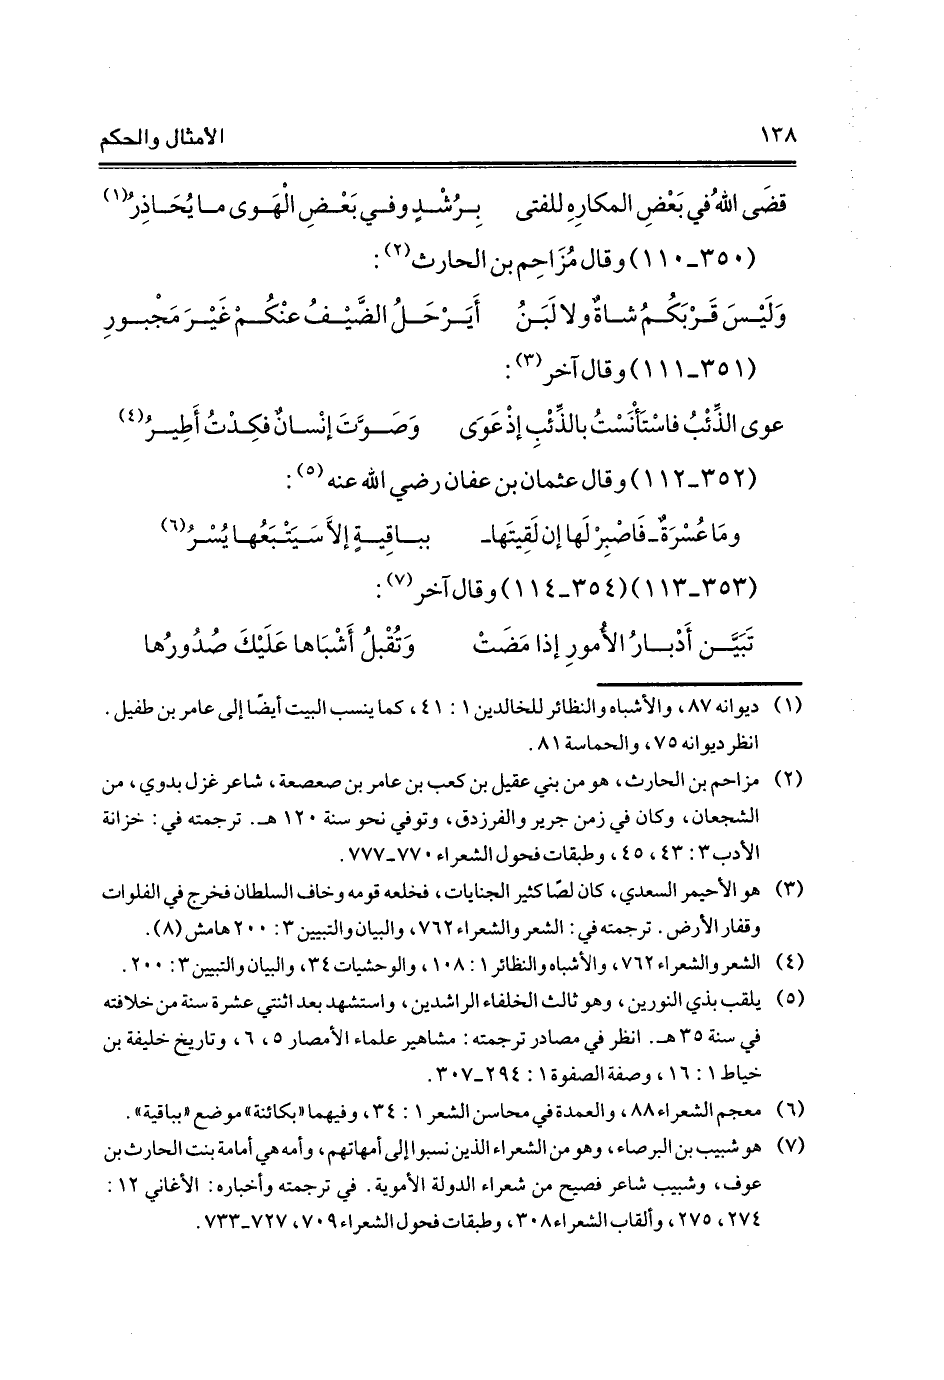 ١٣٨ الأمثال والحكم
قضَى اللهُ في بَعْضِ المكارِهِ للفتى بِرُشْدٍ وفي بَعْضِ الْهَوى ما يُحَاذِرُ(١)
(٣٥٠ـ١١٠) وقال مُزَاحِم بن الحارث(٢):
وَلَيْسَ قَرْبَكُمُ شاةٌ ولا لَبَنُ أَيَرْحَلُ الضَّيْفُ عنْكُمْ غَيْرَ مَجْبورِ
(٣٥١ـ١١١) وقال آخر(٣):
عوى الذِّئْبُ فاسْتَأْنَسْتُ بالذِّئْبِ إذْ عَوَى وَصَوَّتَ إنْسانٌ فكِدْتُ أَطِيرُ(٤)
(٣٥٢ـ١١٢) وقال عثمان بن عفان رضي الله عنه(٥):
ومَا عُسْرَةٌ ـ فَاصْبِرْ لَها إن لَقِيتَها ـ بباقِيةٍ إلاَّ سَيَتْبَعُها يُسْرُ(٦)
(٣٥٣ـ١١٣) (٣٥٤ـ١١٤) وقال آخر(٧):
تَبَيَّن أَدْبارُ الأُمورِ إذا مَضَتْ وَتُقْبلُ أَشْبَاها عَلَيْكَ صُدُورُها
(١) ديوانه ٨٧، والأشباه والنظائر للخالدين ١ : ٤١، كما ينسب البيت أيضًا إلى عامر بن طفيل.
انظر ديوانه ٧٥، والحماسة ٨١.
(٢) مزاحم بن الحارث، هو من بني عقيل بن كعب بن عامر بن صعصعة، شاعر غزل بدوي، من
الشجعان، وكان في زمن جرير والفرزدق، وتوفي نحو سنة ١٢٠ هـ. ترجمته في: خزانة
الأدب ٣: ٤٣، ٤٥، وطبقات فحول الشعراء ٧٧٠ـ٧٧٧.
(٣) هو الأحيمر السعدي، كان لصًا كثير الجنايات، فخلعه قومه وخاف السلطان فخرج في الفلوات
وقفار الأرض. ترجمته في: الشعر والشعراء ٧٦٢، والبيان والتبيين ٣: ٢٠٠ هامش (٨).
(٤) الشعر والشعراء ٧٦٢، والأشباه والنظائر ١: ١٠٨، والوحشيات ٣٤، والبيان والتبيين ٣: ٢٠٠.
(٥) يلقب بذي النورين، وهو ثالث الخلفاء الراشدين، واستشهد بعد اثنتي عشرة سنة من خلافته
في سنة ٣٥ هـ. انظر في مصادر ترجمته: مشاهير علماء الأمصار ٥، ٦، وتاريخ خليفة بن
خياط ١: ١٦، وصفة الصفوة ١: ٢٩٤ـ٣٠٧.
(٦) معجم الشعراء ٨٨، والعمدة في محاسن الشعر ١ : ٣٤، وفيهما «بكائنة» موضع «بباقية».
(٧) هو شبيب بن البرصاء، وهو من الشعراء الذين نسبوا إلى أمهاتهم، وأمه هي أمامة بنت الحارث بن
عوف، وشبيب شاعر فصيح من شعراء الدولة الأموية. في ترجمته وأخباره: الأغاني ١٢ :
٢٧٤، ٢٧٥، وألقاب الشعراء ٣٠٨، وطبقات فحول الشعراء ٧٠٩، ٧٢٧ـ٧٣٣.